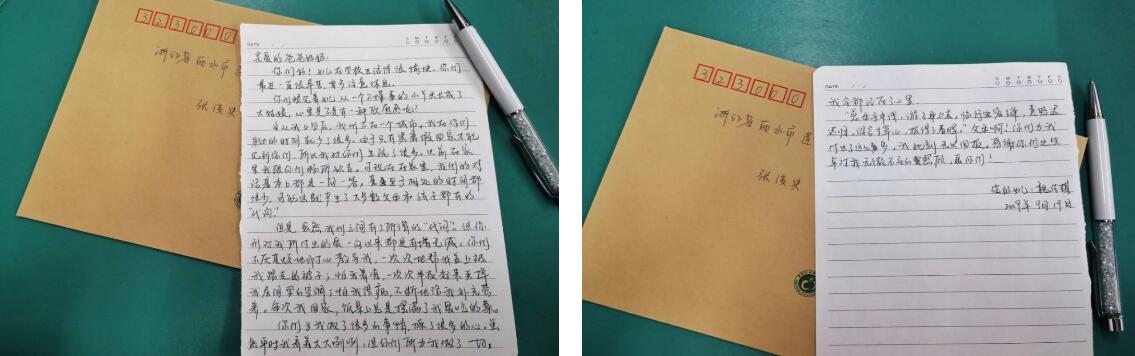 323000
浙江省丽水市莲
张俊英
DATE / /
S M T W T F S
亲爱的爸爸妈妈:
你们好!女儿在学校生活得很愉快。你们
最近一直很辛苦,要多注意休息。
你们眼见着女儿从一个不懂事的小丫头长成了
大姑娘,心里是不是有一种欣慰感呢?
自从我上学后,我们不在一个城市。我和你们
联系的时间就少了很多。由于只有寒暑假回家才能
见到你们,所以我对你们生疏了很多。以前在家
里我跟你们畅所欲言。可现在在家里,我们的对
话基本上都是一问一答。甚至于相处的时间都
很少。可能这就产生了大多数父母和孩子都有的
“代沟”
但是虽然我们之间有了所谓的“代沟”,但你
们对我所付出的爱一向以来都是有增无减:你们
不厌其烦地叮咛教导我,一次次地帮我盖上被
我踢走的被子;怕我着凉,一次次半夜起来关掉
我房间里的空调;怕我得病,不断地给我补充营
养。每次我回家,饭桌上总是摆满了我最爱吃的菜。
你们为我做了很多的事情,操了很多的心。虽
然平时我看着大大咧咧,但你们所为我做了一切,
323000
浙江省丽水市莲
张俊英
DATE / /
S M T W T F S
我全部记在了心里。
“慈母手中线,游子身上衣,临行密密缝,意恐迟
迟归,谁言寸草心,报得三春晖。”父母啊!你们为我
付出了这么多,我此刻无以回报。感谢你们这些
年对我无微不至的照顾,爱你们!
您的女儿:
2019年9月19日